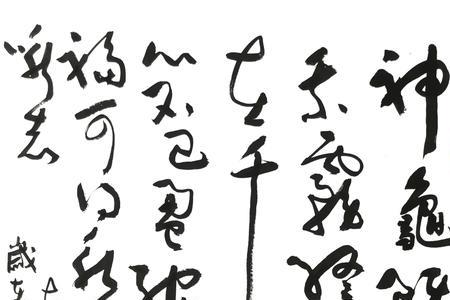 神龜雖
乘霧終
在千
心不已盈縮
福可得永
詠志
歲在